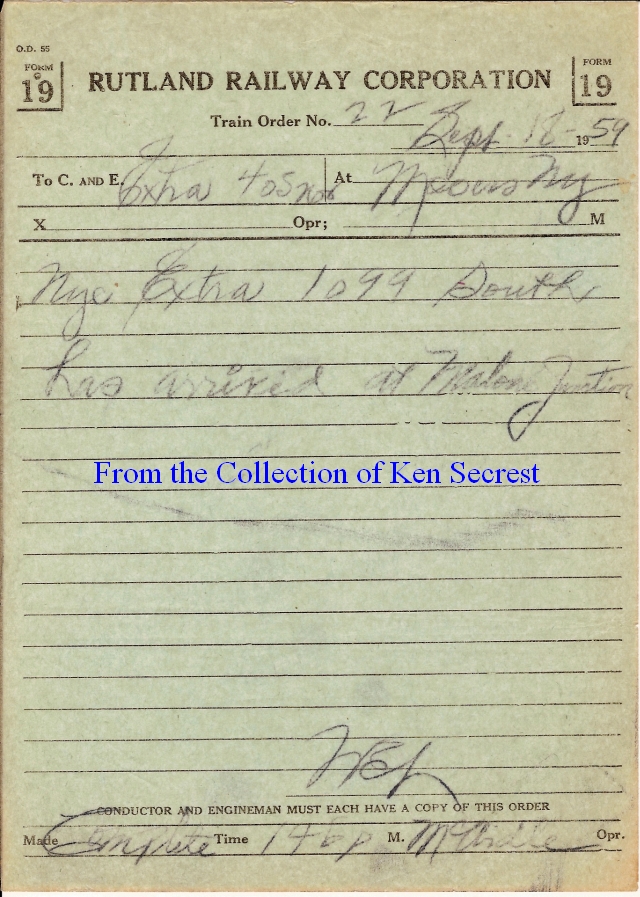 O.D. 55
FORM 19 RUTLAND RAILWAY CORPORATION FORM 19
Train Order No. 22
Sept. 1959
To C. AND E. Extra 405 At Mooers Ny
X Opr; M
Nyc Extra 1099 South,
has arrived at Malone Junction
From the Collection of Ken Secrest
CONDUCTOR AND ENGINEMAN MUST EACH HAVE A COPY OF THIS ORDER
Made Complete Time 146p M. Opr.